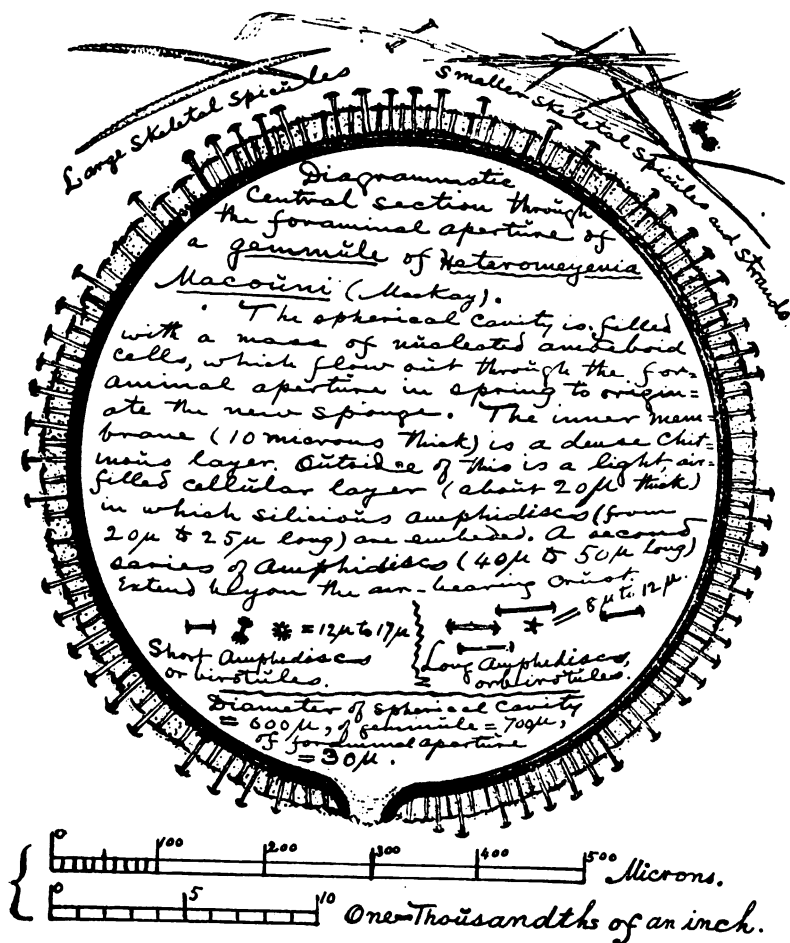 Large Skeletal Spicules
Smaller Skeletal Spicules and Strands.
Diagrammatic
Central section through
the foraminal aperture of
a gemmule of Heteromeyenia
Macouni (MacKay).
The spherical cavity is filled
with a mass of nucleated amoeboid
cells, which flow out through the for-
aminal aperture in spring to origin=
ate the new sponge. The inner mem=
brane (10 microns thick) is a dense chit-
inous layer. Outside of this is a light, air-
filled cellular layer (about 20μ thick)
in which silicious amphidiscs (from
20μ to 25μ long) are embeded. A second
series of Amphidiscs (40μ to 50μ long)
Extend beyon the air-bearing crust.
= 12μ to 17μ
= 8μ to 12μ.
Short Amphediscs
or birotules.
Long Amphediscs,
or birotules.
Diameter of Spherical Cavity
= 600μ, of gemmule = 700μ,
of foraminal aperture
= 30μ.
0 100 200 300 400 500 Microns.
0 5 10 One-Thousandths of an inch.